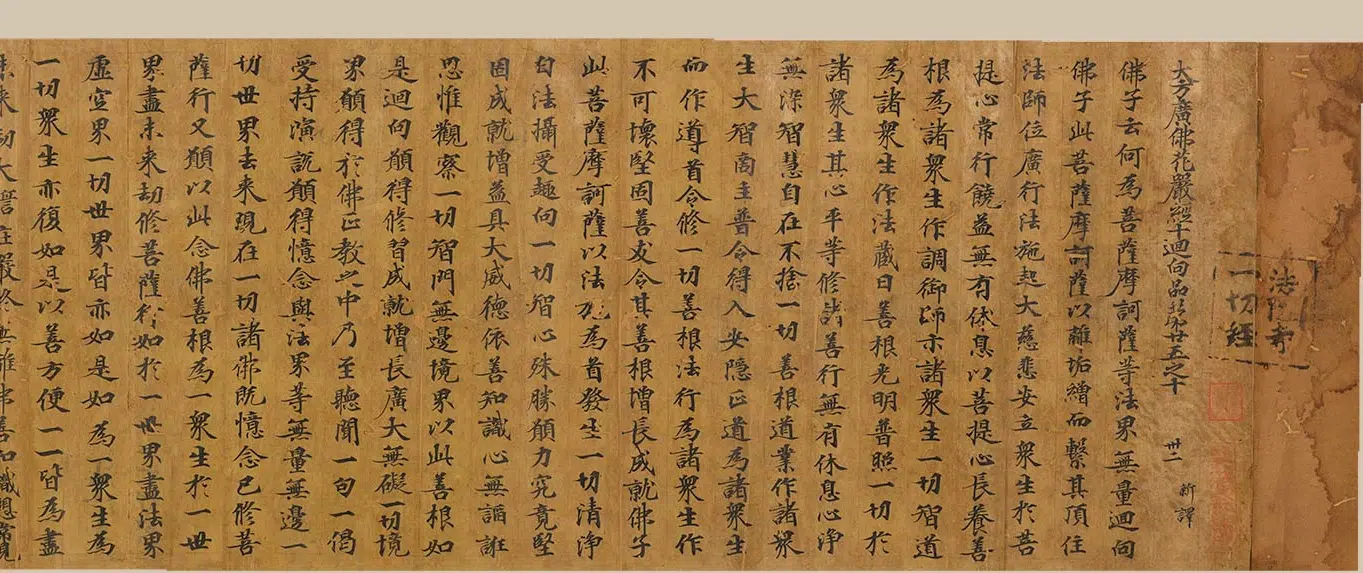 法隆寺
一切經
大方廣佛花嚴經十迴向品苐廿五之十 卅二 新譯
佛子云何為菩薩摩訶薩等法界無量迴向
佛子此菩薩摩訶薩以離垢繒而繫其頂住
法師位廣行法施起大慈悲安立衆生於菩
提心常行饒益無有休息以菩提心長養善
根為諸衆生作調御師示諸衆生一切智道
為諸衆生作法藏日善根光明普照一切於
諸衆生其心平等修諸善行無有休息心淨
無染智慧自在不捨一切善根道業作諸衆
生大智商主普令得入安隱正道為諸衆生
而作導首令修一切善根法行為諸衆生作
不可壞堅固善友令其善根增長成就佛子
此菩薩摩訶薩以法施為首發生一切清淨
白法攝受趣向一切智心殊勝願力究竟堅
固成就增益具大威德依善知識心無諂誑
思惟觀察一切智門無邊境界以此善根如
是迴向願得修習成就增長廣大無礙一切境
界願得於佛正教之中乃至聽聞一句一偈
受持演說願得憶念與法界等無量無邊一
切世界去來現在一切諸佛旣憶念已修菩
薩行又願以此念佛善根為一衆生於一世
界盡未來劫修菩薩行如於一世界盡法界
虛空界一切世界皆亦如是如為一衆生為
一切衆生亦復如是以善方便一一皆為盡
未來劫大誓莊嚴終無離佛善知識想常見